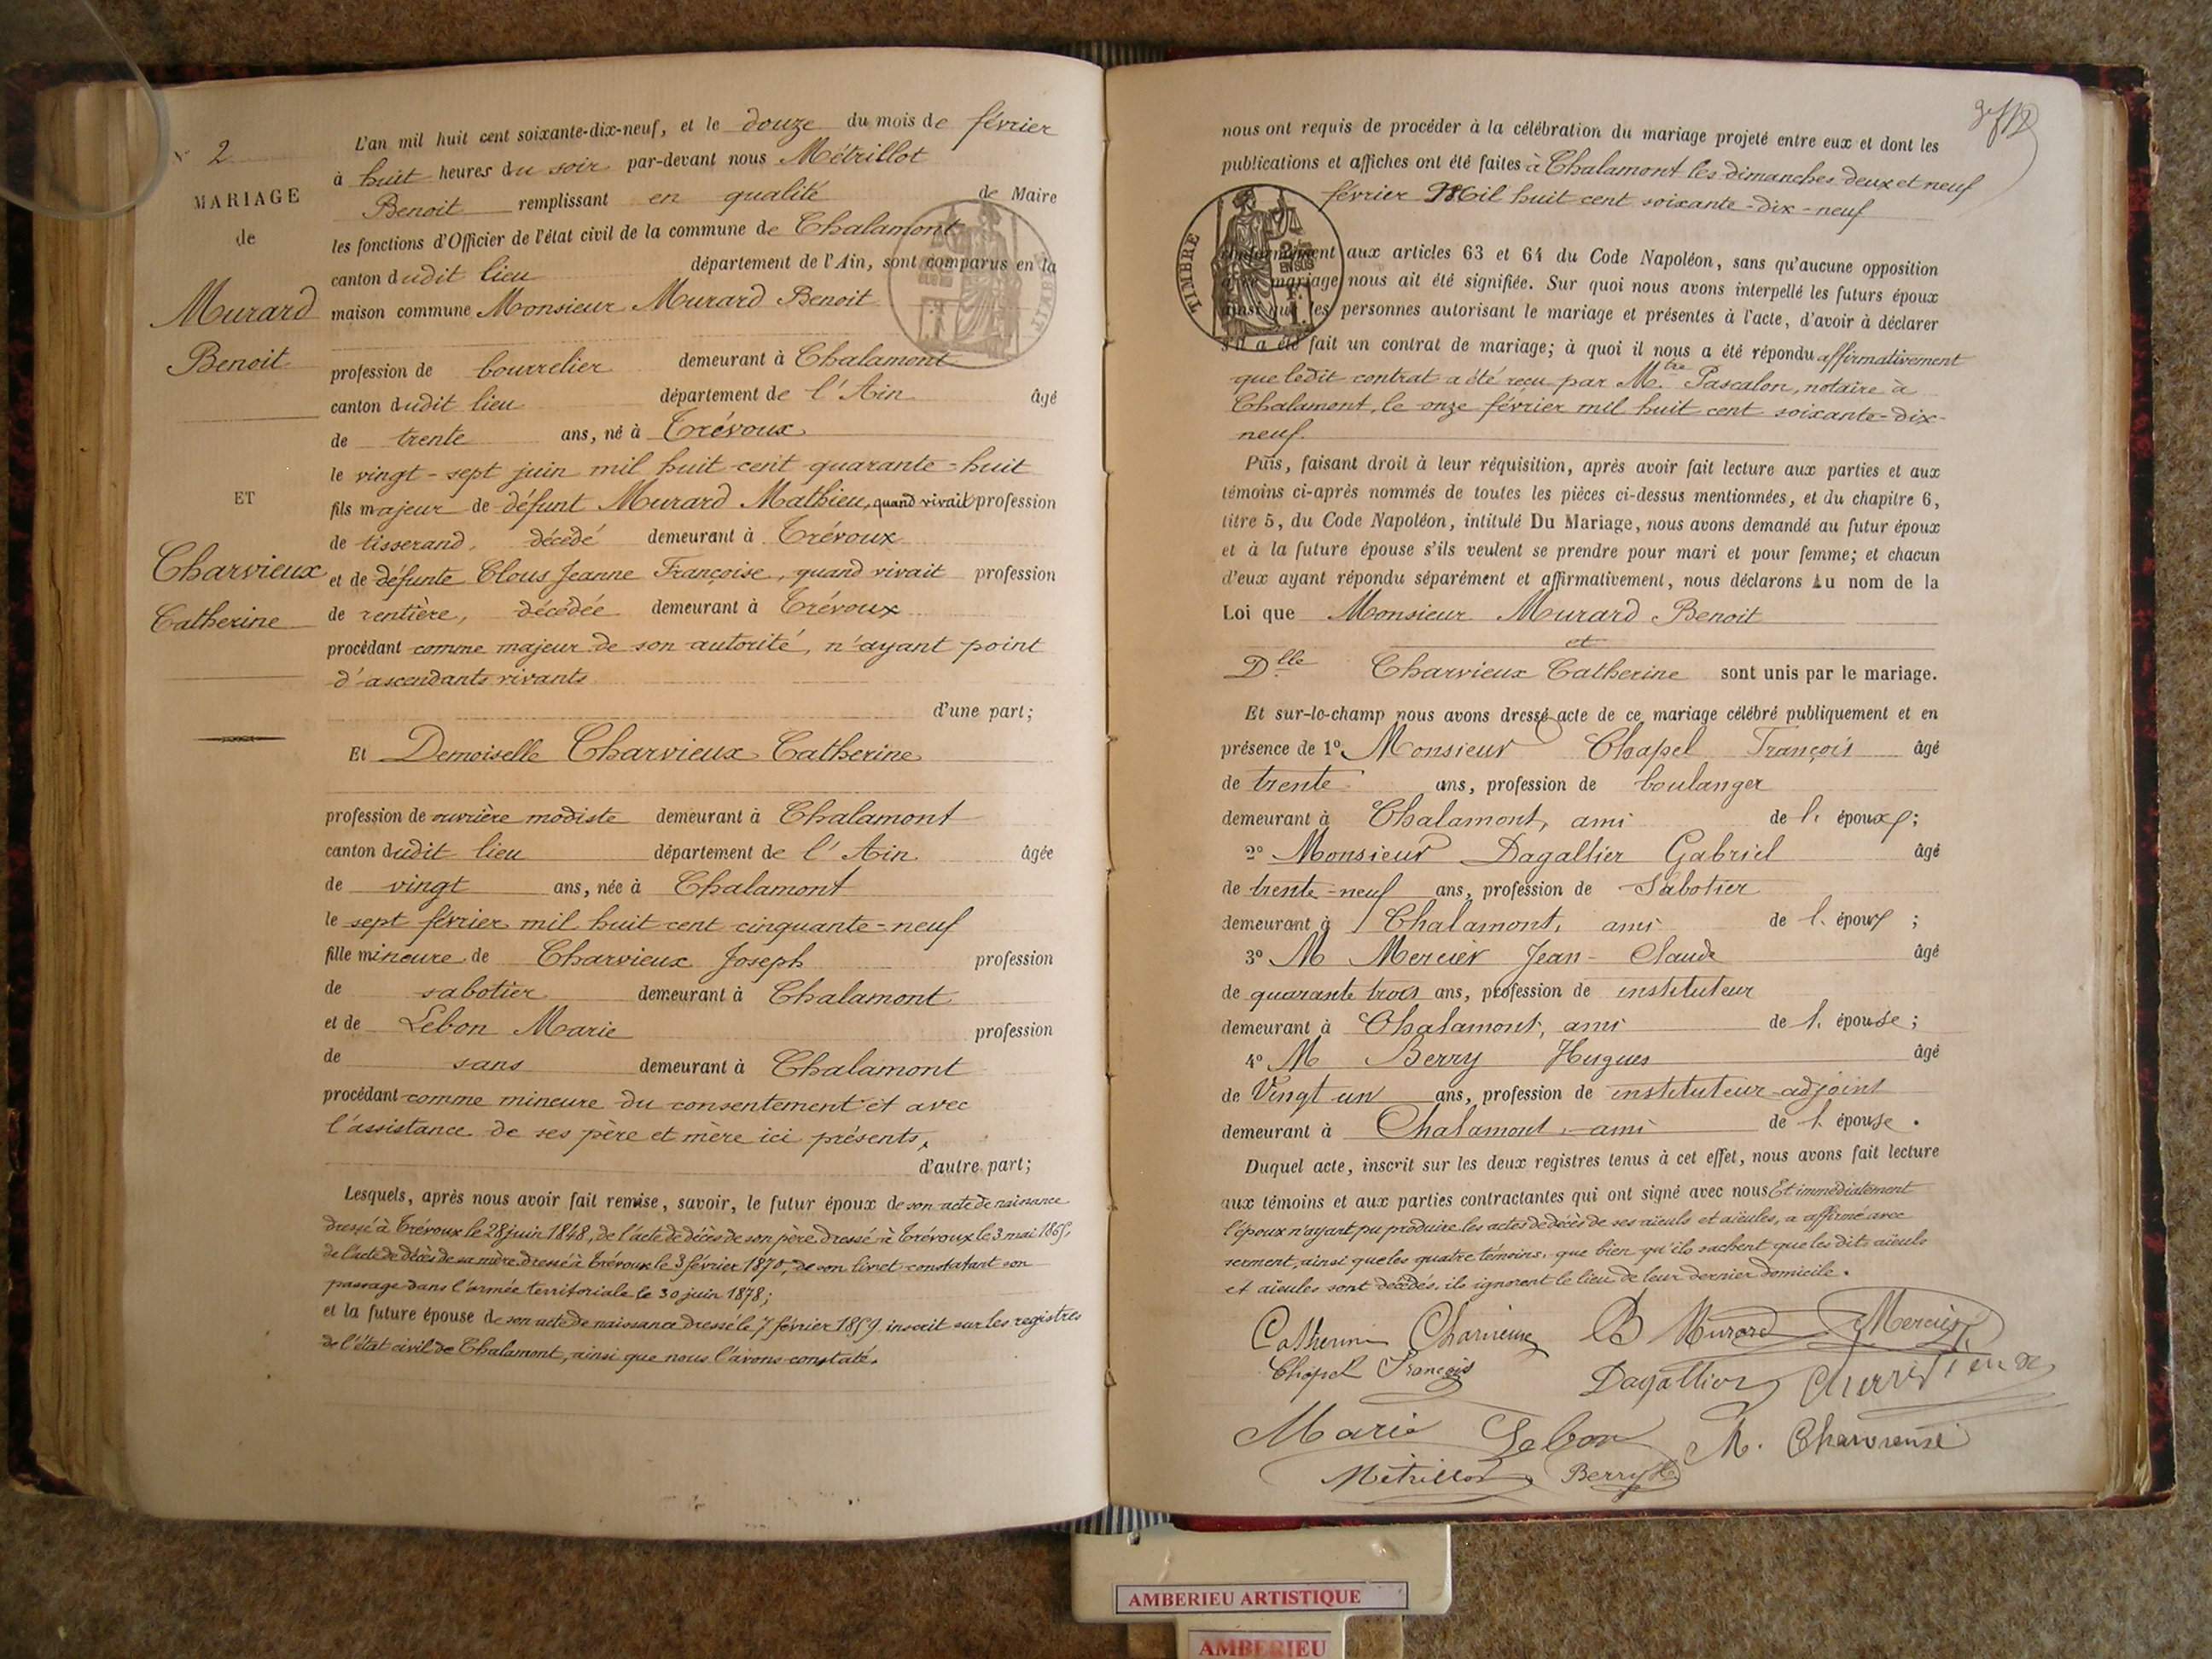 N° 2
MARIAGE
de
Murard
Benoit
ET
Charvieux
Catherine
L'an mil huit cent soixante-dix-neuf, et le douze du mois de février
à huit heures du soir par-devant nous Métrillot
Benoit remplissant en qualité de Maire
les fonctions d'Officier de l'état civil de la commune de Chalamont
canton dudit lieu département de l'Ain, sont comparus en la
maison commune Monsieur Murard Benoit
profession de bourrelier demeurant à Chalamont
canton dudit lieu département de l'Ain âgé
de trente ans, né à Trévoux
le vingt-sept juin mil huit cent quarante-huit
fils majeur de défunt Murard Mathieu, quand vivait profession
de tisserand, décédé demeurant à Trévoux
et de défunte Clous Jeanne Françoise, quand vivait profession
de rentière, décédée demeurant à Trévoux
procédant comme majeur de son autorité, n'ayant point
d'ascendants vivants
d'une part;
Et Demoiselle Charvieux Catherine
profession de ouvrière modiste demeurant à Chalamont
canton dudit lieu département de l'Ain âgée
de vingt ans, née à Chalamont
le sept février mil huit cent cinquante-neuf
fille mineure de Charvieux Joseph profession
de sabotier demeurant à Chalamont
et de Lebon Marie profession
de sans demeurant à Chalamont
procédant comme mineure du consentement et avec
l'assistance de ses père et mère ici présents,
d'autre part;
Lesquels, après nous avoir fait remise, savoir, le futur époux de son acte de naissance
dressé à Trévoux le 28 juin 1848, de l'acte de décès de son père dressé à Trévoux le 3 mai
de l'acte de décès de sa mère dressé à Trévoux le 3 février 1870, de son livret constatant son
passage dans l'armée territoriale le 30 juin 1878;
et la future épouse de son acte de naissance dressé le 7 février 1859 inscrit sur les registres
de l'état civil de Chalamont, ainsi que nous l'avons constaté.
nous ont requis de procéder à la célébration du mariage projeté entre eux et dont les
publications et affiches ont été faites à Chalamont les dimanches deux et neuf
février Mil huit cent soixante-dix-neuf
TIMBRE
conformément aux articles 63 et 64 du Code Napoléon, sans qu'aucune opposition
à ce mariage nous ait été signifiée. Sur quoi nous avons interpellé les futurs époux
ainsi que les personnes autorisant le mariage et présentes à l'acte, d'avoir à déclarer
s'il a été fait un contrat de mariage; à quoi il nous a été répondu affirmativement
que ledit contrat a été reçu par M.tre Pascalon, notaire à
Chalamont, le onze février mil huit cent soixante-dix-
neuf.
Puis, faisant droit à leur réquisition, après avoir fait lecture aux parties et aux
témoins ci-après nommés de toutes les pièces ci-dessus mentionnées, et du chapitre 6,
titre 5, du Code Napoléon, intitulé Du Mariage, nous avons demandé au futur époux
et à la future épouse s'ils veulent se prendre pour mari et pour femme; et chacun
d'eux ayant répondu séparément et affirmativement, nous déclarons Au nom de la
Loi que Monsieur Murard Benoit
et
Dlle Charvieux Catherine sont unis par le mariage.
Et sur-le-champ nous avons dressé acte de ce mariage célébré publiquement et en
présence de 1° Monsieur Chapel François âgé
de trente ans, profession de boulanger
demeurant à Chalamont, ami de l. époux;
2° Monsieur Dagallier Gabriel âgé
de trente-neuf ans, profession de Sabotier
demeurant à Chalamont, ami de l. époux;
3° M Mercier Jean-Claude âgé
de quarante trois ans, profession de instituteur
demeurant à Chalamont, ami de l. épouse;
4° M Berry Hugues âgé
de Vingt un ans, profession de instituteur-adjoint
demeurant à Chalamont, ami de l. épouse.
Duquel acte, inscrit sur les deux registres tenus à cet effet, nous avons fait lecture
aux témoins et aux parties contractantes qui ont signé avec nous Et immédiatement
l'époux n'ayant pu produire les actes de décès de ses aïeuls et aïeules, a affirmé avec
serment, ainsi que les quatre témoins, que bien qu'ils sachent que les dits aïeuls
et aïeules sont décédés, ils ignorent le lieu de leur dernier domicile.
Catherine Charvieux B Murard Mercier
Chapel François Dagallier
Marie Lebon
Métrillot Berry H
AMBERIEU ARTISTIQUE
AMBERIEU